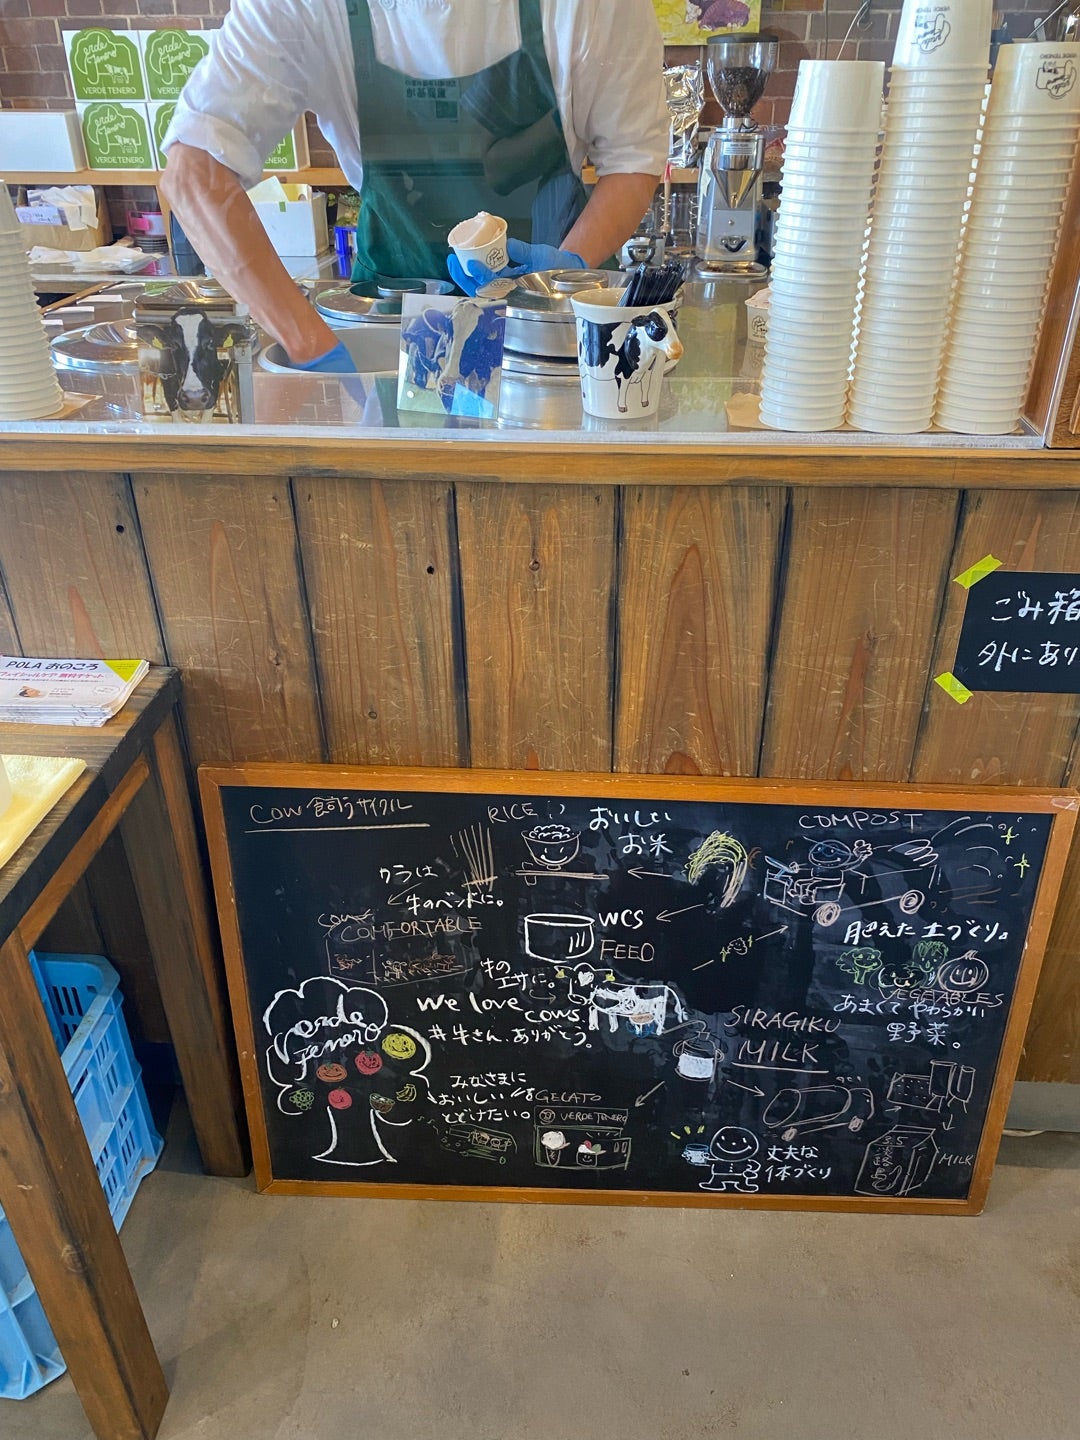 Verde
Tenero
VERDE TENERO
Verde
Tenero
VERDE TENERO
Verde
Tenero
VERDE TENERO
VERDE TENERO
VERDE TENERO
VERDE TENERO
ごみ箱
外にあり
POLA おのころ
フェイシャルケア 無料チケット
COW 飼うサイクル
RICE
おいしい
お米
COMPOST
ワラは
牛のベッドに。
COMFORTABLE
WCS
FEED
肥えた土づくり。
VEGETABLES
あまくて やわらかい
野菜。
牛の
エサに。
We love
cows.
#牛さん、ありがとう。
SIRAGIKU
MILK
Verde
Tenero
みなさまに
おいしいを
とどけたい。
GELATO
VERDE TENERO
丈夫な
体づくり
3.5
MILK